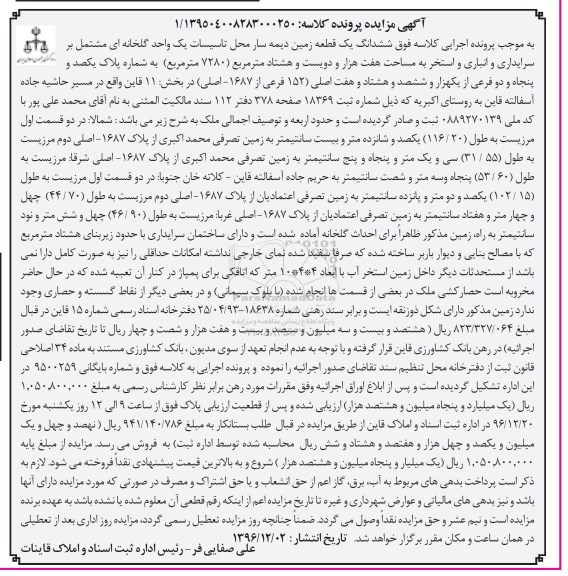 آگهی مزایده پرونده کلاسه: ۱/۱۳۹۵۰۴۰۰۸۲۸۳۰۰۰۲۵۰
به موجب پرونده اجرایی کلاسه فوق ششدانگ یک قطعه زمین دیمه سار محل تاسیسات یک واحد گلخانه ای مشتمل بر
سرایداری و انباری و استخر به مساحت هفت هزار و دویست و هشتاد مترمربع (۷۲۸۰ مترمربع) به شماره پلاک یکصد و
پنجاه و دو فرعی از یکهزار و ششصد و هشتاد و هفت اصلی (۱۵۲ فرعی از ۱۶۸۷-اصلی) در بخش: ۱۱ قاین واقع در مسیر حاشیه جاده
آسفالته قاین به روستای اکبریه که ذیل شماره ثبت ۱۸۳۶۹ صفحه ۳۷۸ دفتر ۱۱۲ سند مالکیت المثنی به نام آقای محمد علی پور با
کد ملی ۰۸۸۹۲۷۰۱۳۹ ثبت و صادر گردیده است و حدود اربعه و توصیف اجمالی ملک به شرح زیر می باشد : شمالا: در دو قسمت اول
مرزیست به طول (۲۰ /۱۱۶) یکصد و شانزده متر و بیست سانتیمتر به زمین تصرفی محمد اکبری از پلاک ۱۶۸۷-اصلی دوم مرزیست
به طول (۵۵ / ۳۱) سی و یک متر و پنجاه و پنج سانتیمتر به زمین تصرفی محمد اکبری از پلاک ۱۶۸۷- اصلی شرقا: مرزیست به
طول (۶۰ / ۵۳) پنجاه وسه متر و شصت سانتیمتر به حریم جاده آسفالته قاین - کلاته خان جنوبا: در دو قسمت اول مرزیست به طول
(۱۵ /۱۰۲) یکصد و دو متر و پانزده سانتیمتر به زمین تصرفی اعتمادیان از پلاک ۱۶۸۷-اصلی دوم مرزیست به طول (۷۰ /۴۴) چهل
و چهار متر و هفتاد سانتیمتر به زمین تصرفی اعتمادیان از پلاک ۱۶۸۷-اصلی غربا: مرزیست به طول (۹۰ /۴۶) چهل و شش متر و نود
سانتیمتر به راه، زمین مذکور ظاهراً برای احداث گلخانه آماده شده است و دارای ساختمان سرایداری با حدود زیربنای هشتاد مترمربع
که با مصالح بنایی و دیوار باربر ساخته شده که صرفا سفید شده نمای خارجی نداشته امکانات حداقلی را نیز به صورت کامل دارا نمی
باشد از مستحدثات دیگر داخل زمین استخر آب با ابعاد ۴*۴*۱۰ متر که اتاقکی برای پمپاژ در کنار آن تعبیه شده که در حال حاضر
مخروبه است حصارکشی ملک در بعضی از قسمت ها انجام شده (با بلوک سیمانی) و در بعضی دیگر از نقاط گسسته و حصاری وجود
ندارد زمین مذکور دارای شکل ذوزنقه ایست و برابر سند رهنی شماره ۱۸۶۳۸-۲۵/۰۴/۹۳ دفترخانه اسناد رسمی شماره ۱۵ قاین در قبال
مبلغ ۸۲۳/۳۲۷/۰۶۴ ریال ( هشتصد و بیست و سه میلیون و سیصد و بیست و هفت هزار و شصت و چهار ریال تا تاریخ تقاضای صدور
اجرائیه) در رهن بانک کشاورزی قاین قرار گرفته و با توجه به عدم انجام تعهد از سوی مدیون ، بانک کشاورزی مستند به ماده ۳۴ اصلاحی
قانون ثبت از دفترخانه محل تنظیم سند تقاضای صدور اجرائیه را نموده و پرونده اجرایی به کلاسه فوق و شماره بایگانی ۹۵۰۰۲۵۹ در
این اداره تشکیل گردیده است و پس از ابلاغ اوراق اجرائیه وفق مقررات مورد رهن برابر نظر کارشناس رسمی به مبلغ ۱,۰۵۰,۸۰۰,۰۰۰
ریال (یک میلیارد و پنجاه میلیون و هشتصد هزار) ارزیابی شده و پس از قطعیت ارزیابی پلاک فوق از ساعت ۹ الی ۱۲ روز یکشنبه مورخ
۹۶/۱۲/۲۰ در اداره ثبت اسناد و املاک قاین از طریق مزایده در قبال طلب بستانکار به مبلغ ۹۴۱/۱۴۰/۷۸۶ ریال ( نهصد و چهل و یک
میلیون و یکصد و چهل هزار و هفتصد و هشتاد و شش ریال محاسبه شده توسط اداره ثبت) به فروش می رسد. مزایده از مبلغ پایه
۱,۰۵۰,۸۰۰,۰۰۰ ریال (یک میلیار و پنجاه میلیون و هشتصد هزار ) شروع و به بالاترین قیمت پیشنهادی نقداً فروخته می شود. لازم به
ذکر است پرداخت بدهی های مربوط به آب، برق، گاز اعم از حق انشعاب و یا حق اشتراک و مصرف در صورتی که مورد مزایده دارای آنها
باشد و نیز بدهی های مالیاتی و عوارض شهرداری و غیره تا تاریخ مزایده اعم از اینکه رقم قطعی آن معلوم شده یا نشده باشد به عهده برنده
مزایده است و نیم عشر و حق مزایده نقداً وصول می گردد. ضمناً چنانچه روز مزایده تعطیل رسمی گردد، مزایده روز اداری بعد از تعطیلی
در همان ساعت و مکان مقرر برگزار خواهد شد. تاریخ انتشار : ۱۳۹۶/۱۲/۰۲
علی صفایی فر - رئیس اداره ثبت اسناد و املاک قاینات